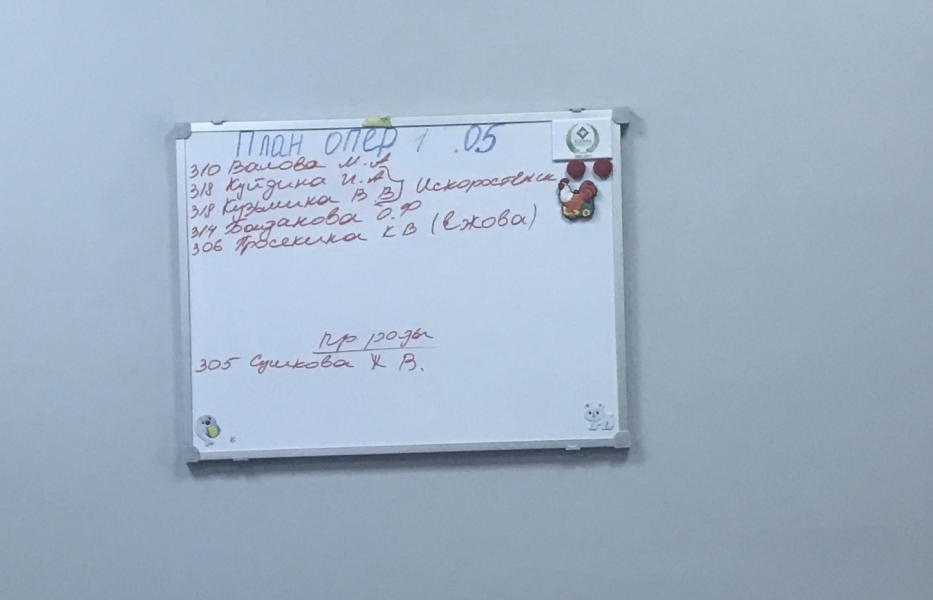 План опер 1 .05
310 Валова М. А
318 Куйдина И. А
318 Кузьмина В В Искоростенск
314 О.Ф
306 Просекина К В (Ежова)
пр роды
305 Сушкова К В.